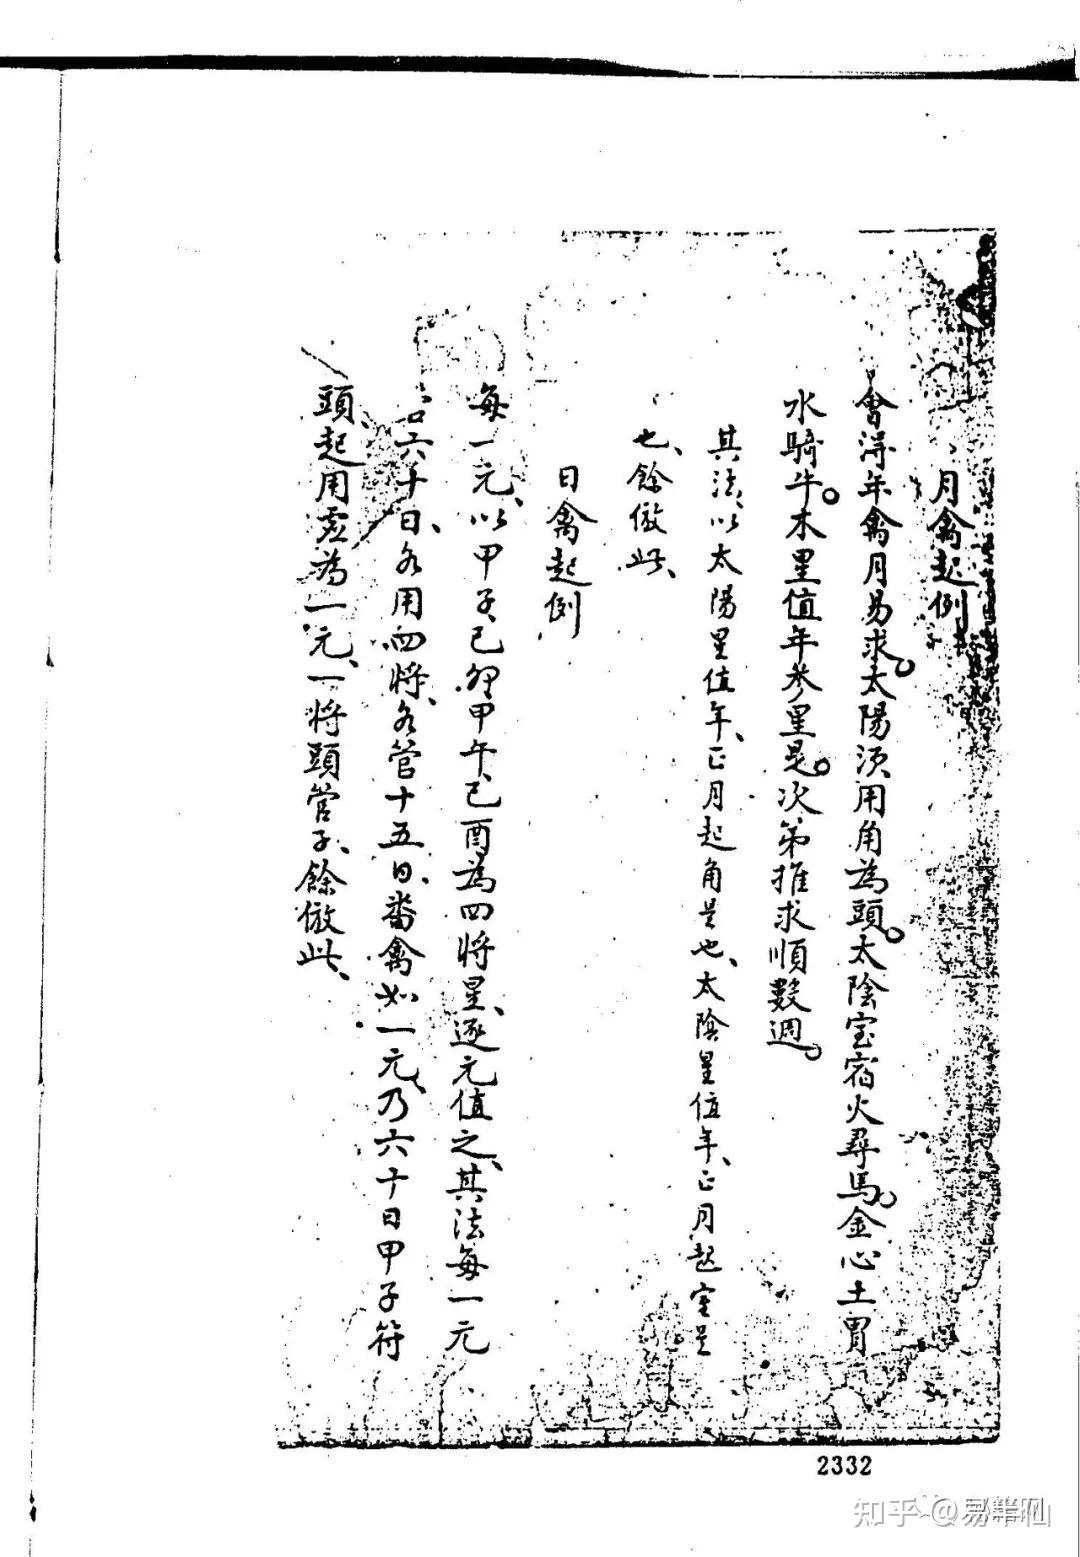 月禽起例
會得年禽月易求。太陽須用角為頭。太陰室宿火尋馬。金心土胃
水騎牛。木星值年參星是。次第推求順數週。
其法、以太陽星值年、正月起角是也、太陰星值年、正月起室是
也、餘倣此、
日禽起例
每一元、以甲子己卯甲午己酉為四將星、逐元值之、其法每一元
六十日、各用四將、各管十五日、番禽如一元、乃六十日甲子符
頭、起用虛為一元、一將頭管子、餘倣此、
2332
知乎 @易籍网